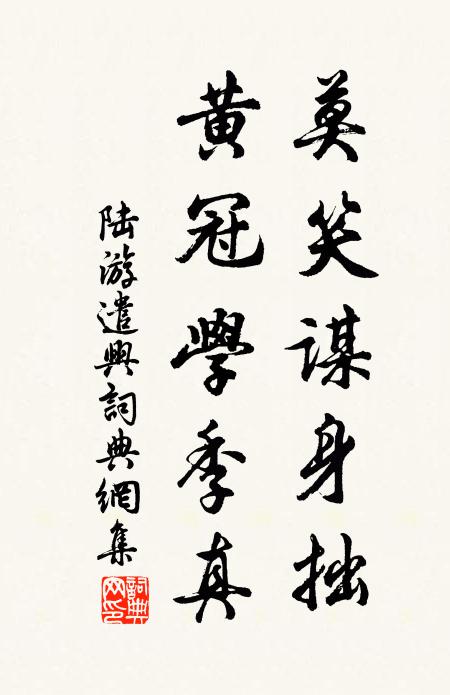 莫笑谋身拙
黄冠學季真
陆游遣興詞典網集
詞典网印